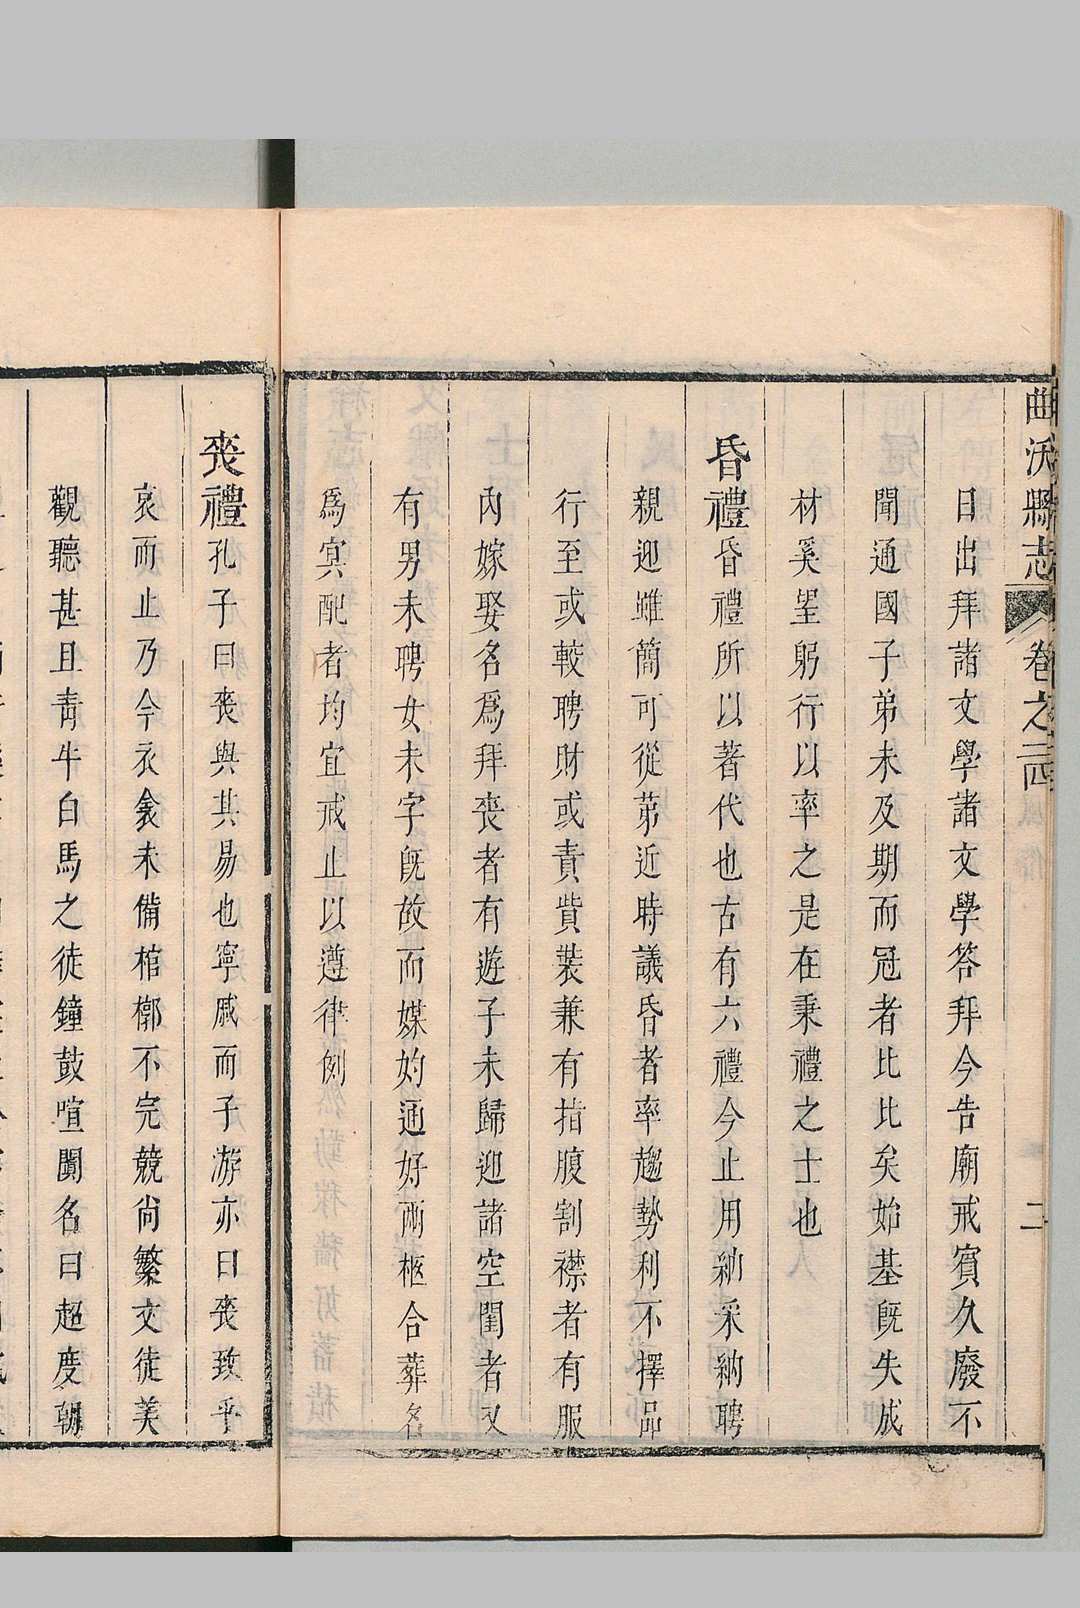 曲沃縣志
卷之二四
二
日出拜諸文學諸文學答拜今告廟戒賓久廢不
聞通國子弟未及期而冠者比比矣始基旣失成
材奚望躬行以率之是在秉禮之士也
昏禮昏禮所以著代也古有六禮今止用納采納聘
親迎雖簡可從苐近時議昏者率趨勢利不擇品
行至或較聘財或責貲裝兼有指腹割襟者有服
內嫁娶名爲拜喪者有遊子未歸迎諸空閨者又
有男未聘女未字旣故而媒妁通好兩柩合葬名
爲冥配者均宜戒止以遵律例
喪禮孔子曰喪與其易也寧戚而子游亦曰喪致乎
哀而止乃今衣衾未備棺槨不完競尚繁文徒美
觀聽甚且靑牛白馬之徒鐘鼓喧闐名曰超度朝